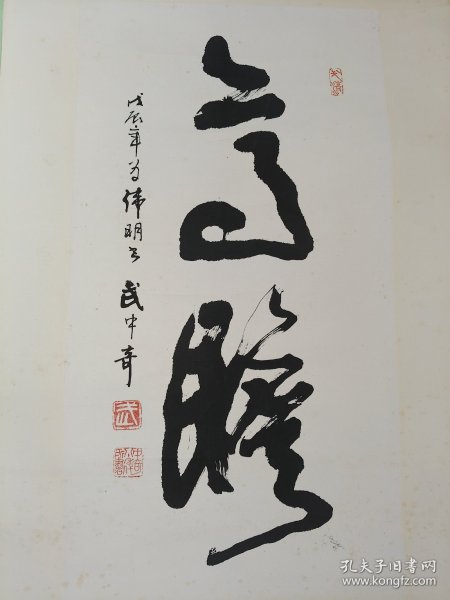 高瞻
戊辰年为伟明书 武中奇
武
孔夫子旧书网
www.kongfz.com